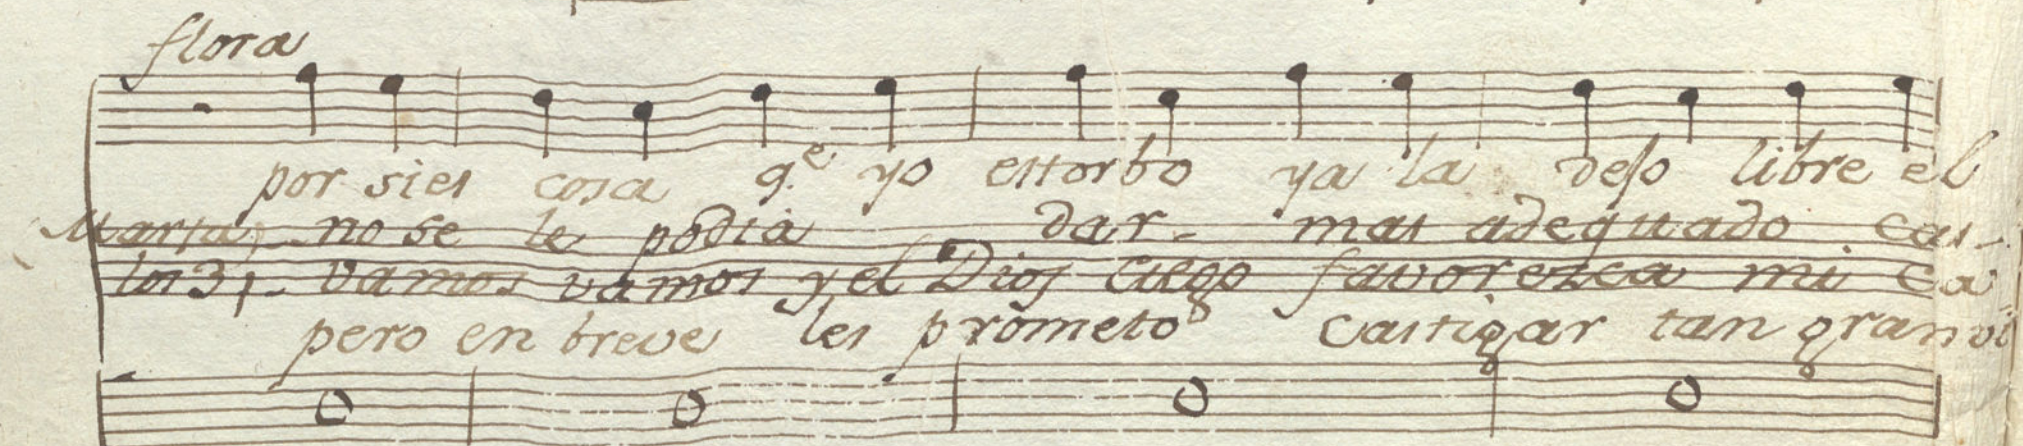 flora
por si es cosa q.e yo estorbo ya la dejo libre el
Marta, no se le podia dar mas adequado cas-
los 3, vamos vamos y el Dios ciego favorezca mi ca
pero en breve les prometo castigar tan gran vi